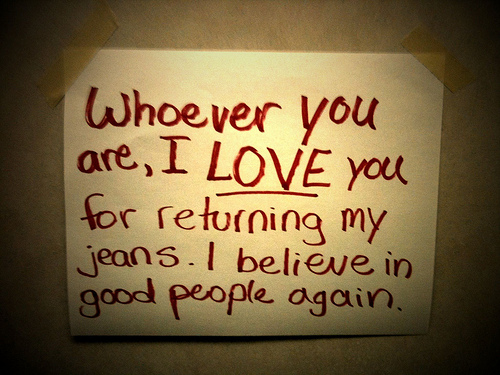 Whoever you
are, I LOVE you
for returning my
jeans. I believe in
good people again.